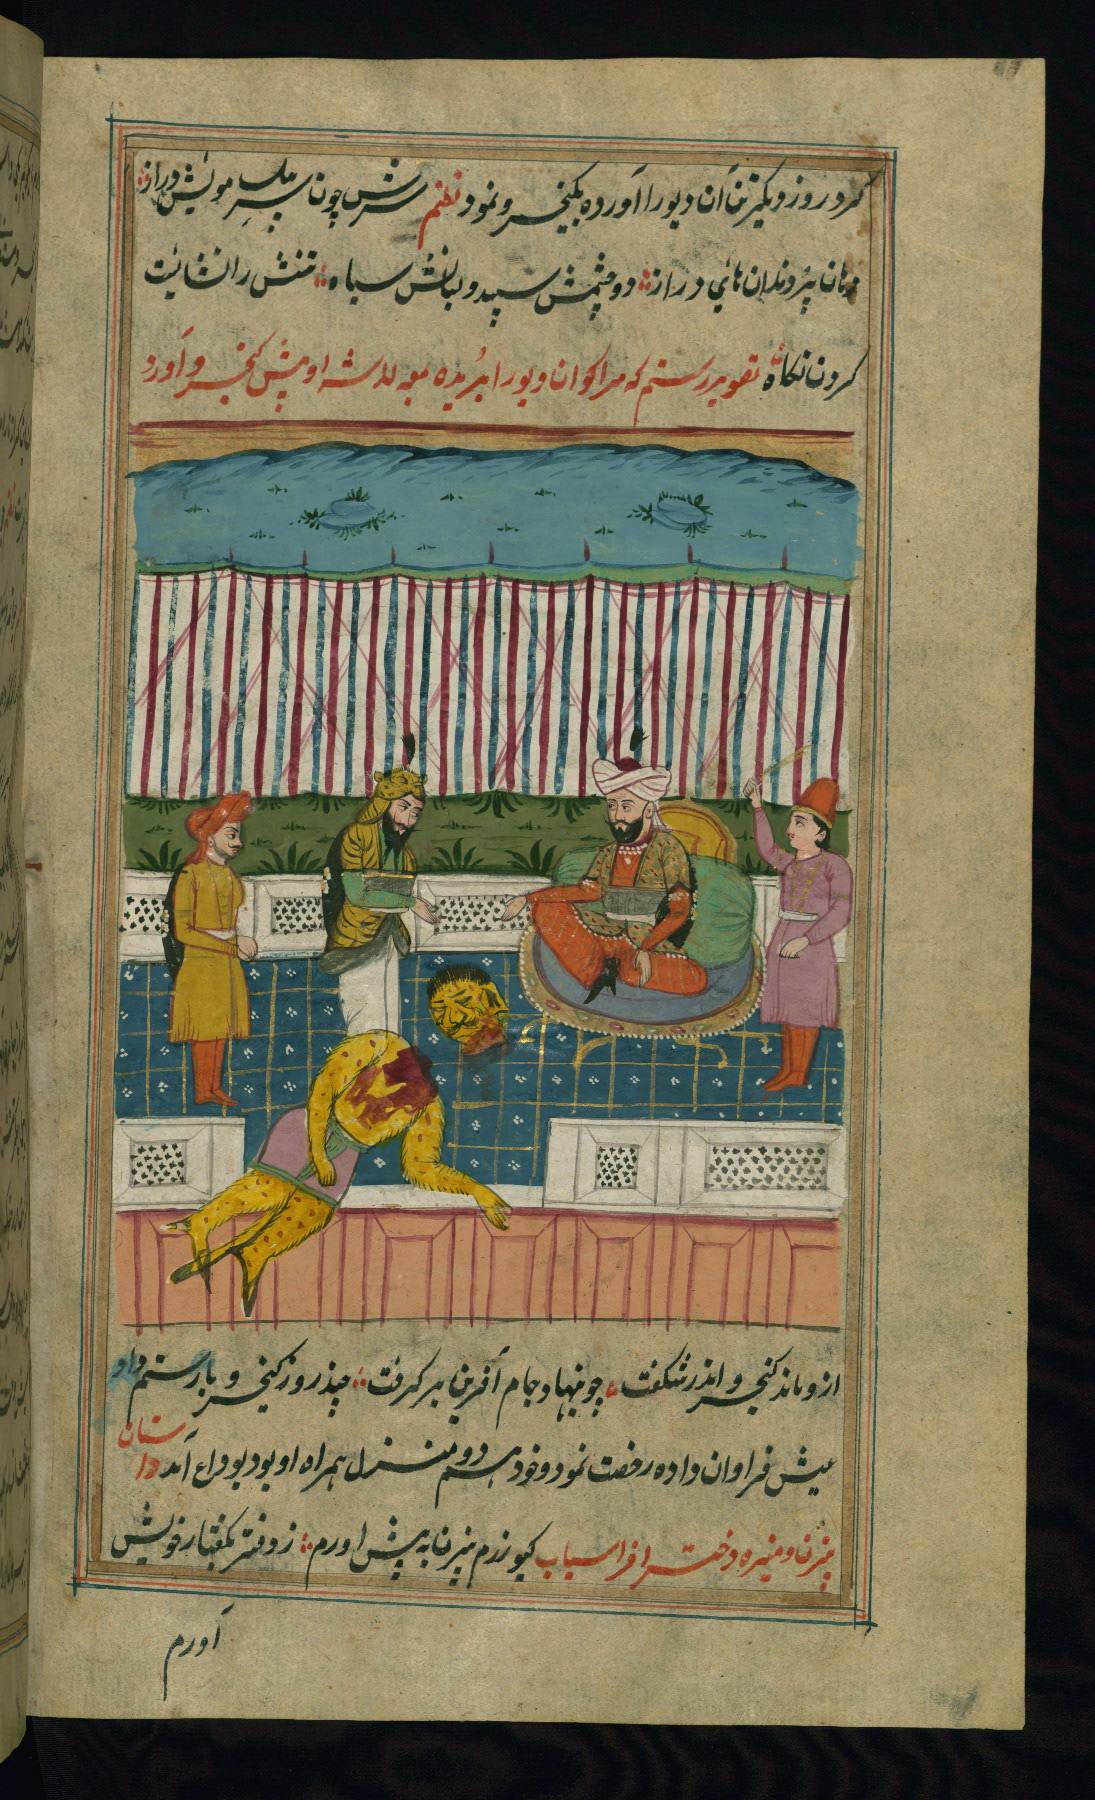 کرد روز دیگر تن آن دیو را آورده بکیخسرو نمود نظم سرش چون سر پیل مویش دراز
دهان پر دندان هائی دراز دو چشمش سپید و لبانش سیاه تنش را نشایت
کردن نکاه تصویر رستم که سر اکوان دیو را بریده معه لاشه او پیش کیخسرو آورد
ازو ماند کیخسرو اندر شکفت چو بنهاد جام آفرین بر کرفت چند روز کیخسرو با رستم داد
عیش فراوان داده رخصت نمود و خود هم دو منزل همراه او بود بوداع آمد داستان
بیژن و منیژه دختر افراسیاب کنون رزم بیژن به پیش اورم ز دفتر بکفتار خویش
آورم